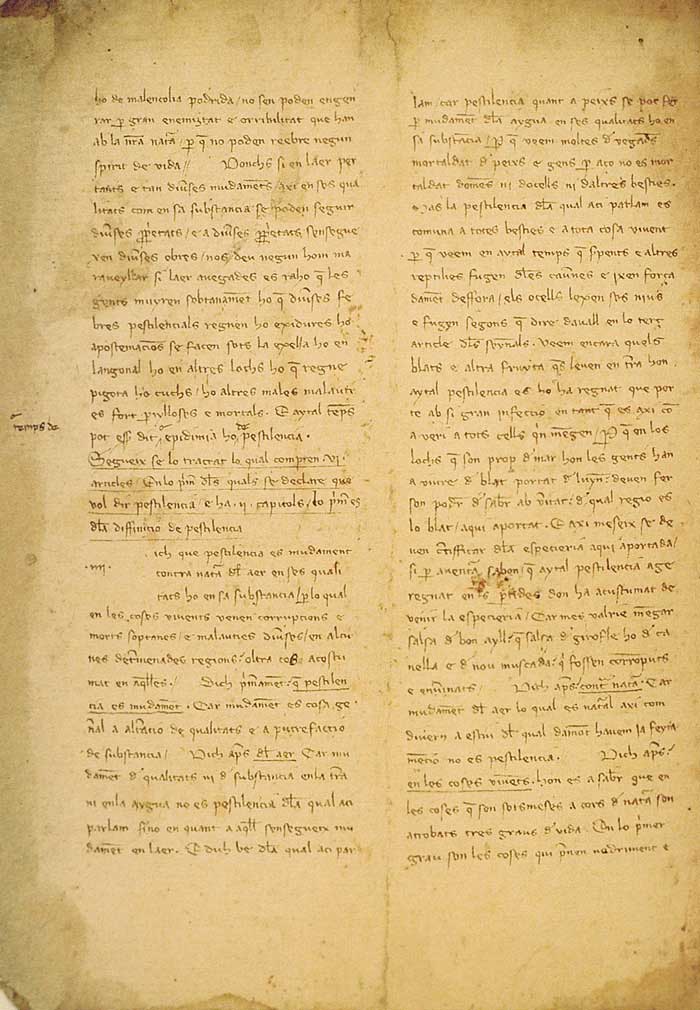 ho de malencolia podrida / no sen poden engen
rar p gran enemiztat e orribilitat que han
ab la nra nata / p q no poden reebre negun
spirit de vida // Donchs si en laer per
tants e tan diuses mudamets / axi en ses qua
litats com en sa substancia se poden seguir
diuses ppietats / e a diuses ppietats sensegue
xen diuses obres / nos deu negun hom ma
raueyllar si laer auegades es raho q les
gents muyren sobtanamet ho q diuses fe
bres pestilencials regnen ho exidures ho
apostemacios se facen sots la exella ho en
langonal ho en altres lochs ho q regne
pigota ho cuchs / ho altres males malauti
es fort pylloses e mortals. E aytal temps
temps de
pot ess dit epidimia ho de pestilencia.
Segueix se lo tractat lo qual compren vi
articles / En lo pm dls quals se declare que
vol dir pestilencia e ha .ii. capitols / lo pm es
dla diffinicio de pestilencia
ich que pestilencia es mudament
contra nata dl aer en ses quali
tats ho en sa substancia / p lo qual
en les coses viuents venen corrupcions e
morts soptanes e malauties diuses / en alcu
nes detmenades regions: oltra cos acostu
mat en aqlles. / Dich pmamet: q pestilen
cia es mudamet. Car mudamet es cosa ge
nal a altacio de qualitats e a putrefaccio
de substancia / Dich aps dl aer. Car mu
damet d qualitats ni d substancia en la tra
ni en la aygua no es pestilencia dla qual aci
parlam sino en quant a aqll sensegueix mu
damet en laer. E dich be dla qual aci par
lam / car pestilencia quant a peixs se pot fer
p mudamet dla aygua en ses qualitats ho en
sa substacia / P q veem moltes d vegads
mortaldat d peixs e gens p aço no es mor
taldat domes ni docells ni daltres besties.
Mas la pestilencia dla qual aci parlam es
comuna a totes besties e a tota cosa viuent
p q veem en aytal temps q spents e altres
reptilies fugen dles cauнes e ixen força
damet deffora / els ocells lexen ses nius
e fugen segons q dire dauall en lo terç
article dls seynals. Veem encara quels
blats e altra fruyta qs leuen en tra hon
aytal pestilencia es ho ha regnat que por
te ab si gran infeccio en tant q es axi com
a veri a tots cells qn mengen / P q en los
lochs q son prop d mar hon les gents han
a viure d blat portat d luyn: deuen fer
son podr d sabr ab vitat: d qual regio es
lo blat / aqui aportat. E axi meseix se de
uen ctifficar dla especieria aqui aportada /
si p auentura sabon q aytal pestilencia age
regnat en ls ptides don ha acustumat de
venir la especieria / Car mes valrie megar
salsa d bon ayll: q salsa d girofle ho d ca
nella e d nou muscada: q fossen corroputs
e enuinats / Dich aps: contra nata. Car
mudamet dl aer lo qual es natal axi com
diuern a estiu dl qual damot hauem la feyta
mecio no es pestilencia. Dich aps:
en les coses viuets. hon es a sabr que en
les coses q son sotsmeses a cors d nata son
atrobats tres graus d vida. En lo pmer
grau son les coses qui pnen nodriment e